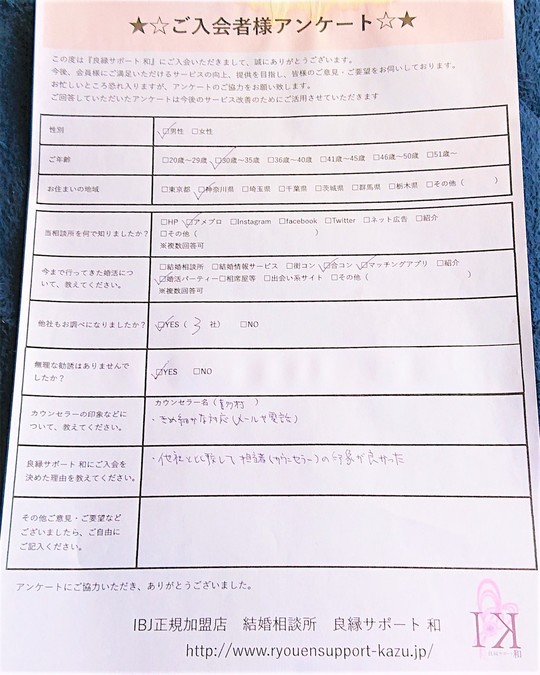 ★☆ご入会者様アンケート☆★
この度は『良縁サポート 和』にご入会いただきまして、誠にありがとうございます。
今後、会員様にご満足いただけるサービスの向上、提供を目指し、皆様のご意見・ご要望をお伺いしております。
お忙しいところ恐れ入りますが、アンケートのご協力をお願い致します。
ご回答していただいたアンケートは今後のサービス改善のためにご活用させていただきます
性別
☑男性 □女性
ご年齢
□20歳～29歳 ☑30歳～35歳 □36歳～40歳 □41歳～45歳 □46歳～50歳 □51歳～
お住まいの地域
□東京都 ☑神奈川県 □埼玉県 □千葉県 □茨城県 □群馬県 □栃木県 □その他（ ）
当相談所を何で知りましたか？
□HP ☑アメブロ □Instagram □facebook □Twitter □ネット広告 □紹介
□その他（ ）
※複数回答可
今まで行ってきた婚活について、教えてください。
□結婚相談所 □結婚情報サービス □街コン ☑合コン ☑マッチングアプリ □紹介
☑婚活パーティー □相席屋等 □出会い系サイト □その他（ ）
※複数回答可
他社もお調べになりましたか？
☑YES（ 3 社） □NO
無理な勧誘はありませんでしたか？
☑YES □NO
カウンセラーの印象などについて、教えてください。
カウンセラー名（ 村 ）
・きめ細かな対応（メールや電話）
良縁サポート 和にご入会を決めた理由を教えてください。
・他社と比較して担当者（カウンセラー）の印象が良かった
その他ご意見・ご要望などございましたら、ご自由にご記入ください。
アンケートにご協力いただき、ありがとうございました。
IBJ正規加盟店 結婚相談所 良縁サポート 和
http://www.ryouensupport-kazu.jp/
良縁サポート 和